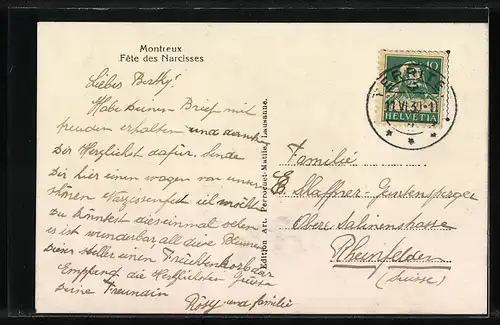 Montreux
Fête des Narcisses
Liebes Berthy!
Habe deinen Brief mit
freuden erhalten und danke
Dir Herzlichst dafür. Sende
Dir hier einen wagen von unser
schönen Narzissenfest ich möchte
Du könntest dies einmal sehen
es ist wunderbar all diese Blumen
Dieser stellt einen Früchtenkorb dar
Empfang die Herzlichsten Grüsse
deine Freundin
Rösy und familie
Edition Art. Perrochet-Matile, Lausanne.
10
HELVETIA
TERRITET
11.VI.30-11
Familie
E. Schaffner-Gentensperger
Obere Salinenstrasse
Rheinfelden
(Suisse)